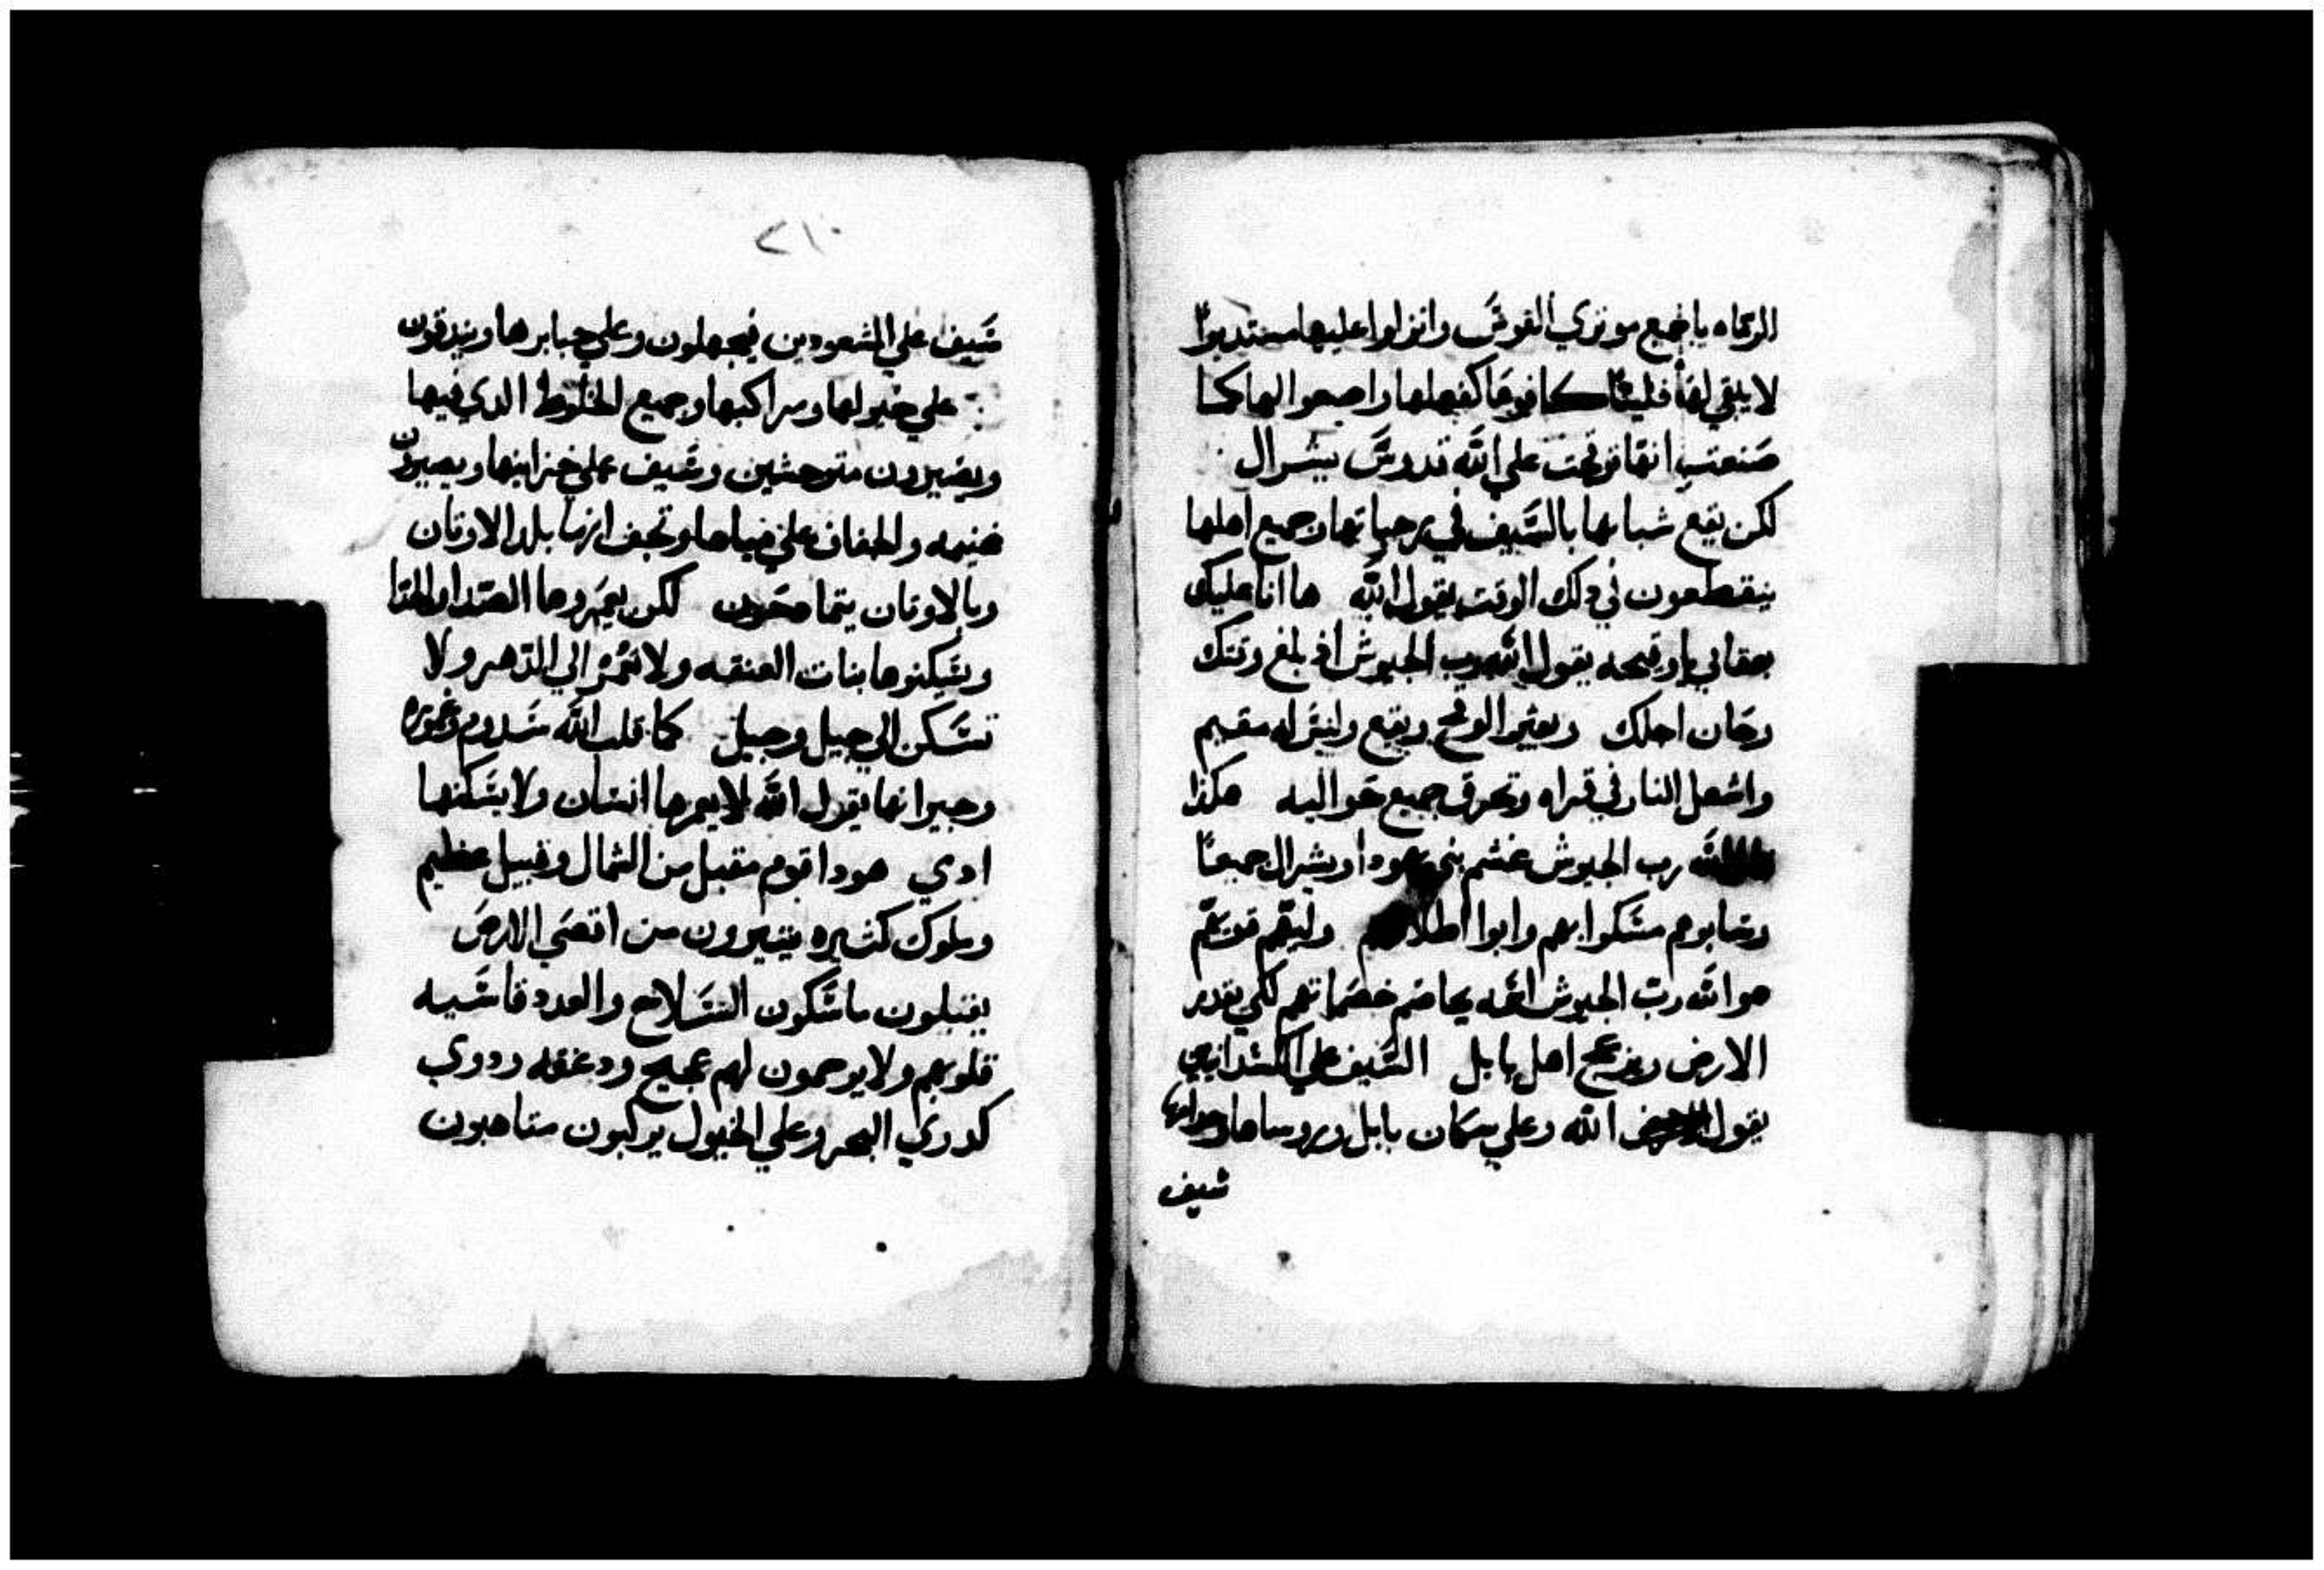 الرماه يا جميع موتري القوس وانزلوا عليها مستديرا
لا يبقي لها فليتا كافوها كفعلها واصعوا لها كما
صنعت انها توقحت علي الله قدوس يسرال
لكن يقع شبابها بالسيف في رحباتها وجميع اهلها
ينقطعون في دلك الوقت يقول الله ها انا عليك
يا وقيحه يقول الله رب الجيوش اذ بلغ وقتك
وحان اجلك ويعثر الوقح ويقع وليس له مقيم
واشعل النار في قراه وتحرق جميع حواليه هكذا
الله رب الجيوش غشم بني يهودا ويسرال جميعا
وسابوهم مسكوا بهم وابوا اطلاقهم وليهم قويهم
هو الله رب الجيوش اسمه يخاصم خصماتهم لكي
الارض ويزعج اهل بابل السيف علي الكسدانيين
يقول الله وعلي سكان بابل وروساها وحكماها
سيف
٢١٠
سيف علي المشعودين فيجهلون وعلي جبابرها ويندقون
علي خيولها ومراكبها وجميع الخلوط الدي فيها
ويصيرون متوحشين وسيف علي خزاينها ويصيرون
غنيمه والجفاف علي مياهها وتجف انها بلد الاوتان
وبالاوتان يتماجدون لكن يعمروها
ويسكنوها بنات العنقه ولا تعمر الي الدهر ولا
تسكن الي جيل وجيل كما قلب الله سدوم وغموره
وجيرانها يقول الله لا يعمرها انسان ولا يسكنها
ادمي هودا قوم مقبل من الشمال وقبيل عظيم
وملوك كثيره يتيرون من اقصي الارض
يقبلون ماسكون السلاح والعدد قاسيه
قلوبهم ولا يرحمون لهم عجيج ودغقه ودوي
كدوي البحر وعلي الخيول يركبون متاهبون